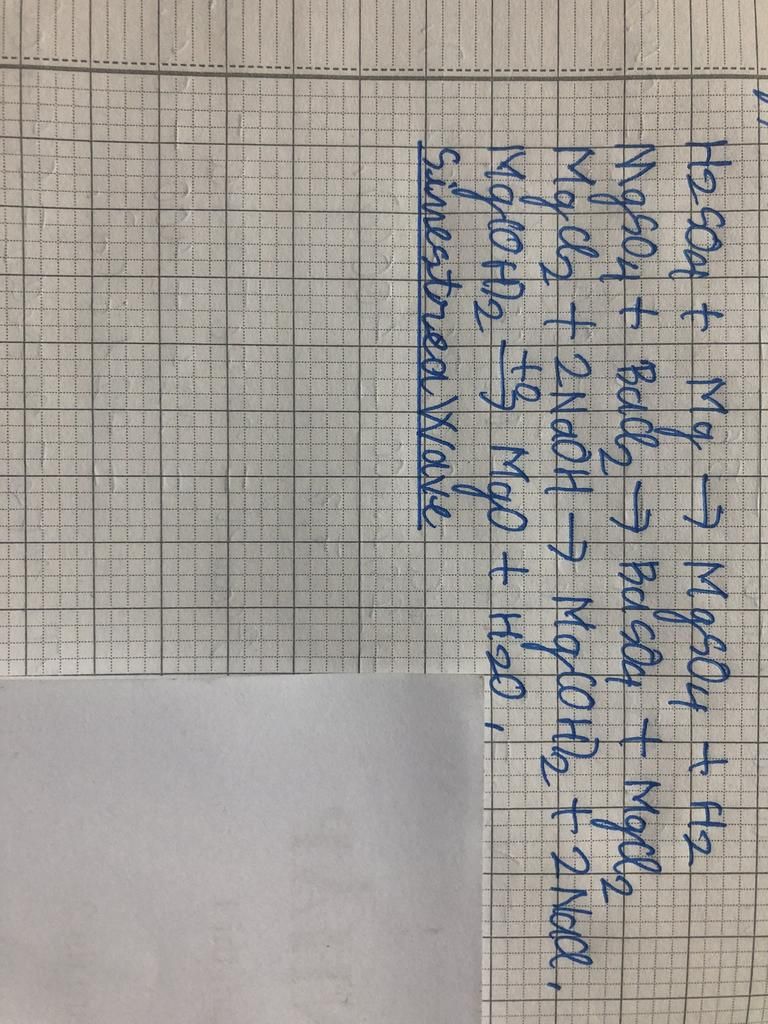 H2SO4 + Mg → MgSO4 + H2
MgSO4 + BaCl2 → BaSO4 + MgCl2
MgCl2 + 2NaOH → Mg(OH)2 + 2NaCl,
Mg(OH)2 →to MgO + H2O,
SimestreaWave